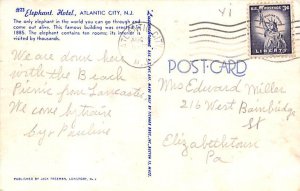 Elephant Hotel, ATLANTIC CITY, N.J.
The only elephant in the world you can go through and
come out alive. This famous building was erected in
1885. The elephant contains ten rooms; its interior is
visited by thousands.
We are down here
with the Beach
Picnic from Lancaster
We come by train
Pauline
POST CARD
U.S. POSTAGE 3¢
LIBERTY
Mrs Edward Miller
216 West Bainbridge
St
Elizabethtown
Pa
PUBLISHED BY JACK FREEMAN, LONGPORT, N.J.